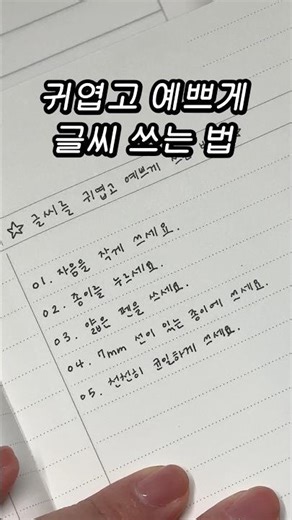 귀엽고 예쁘게
글씨 쓰는 법
☆ 글씨를 귀엽고 예쁘게
01. 자음을 작게 쓰세요.
02. 종이를 누르세요.
03. 얇은 펜을 쓰세요.
04. 7mm 선이 있는 종이에 쓰세요.
05. 천천히 균일하게 쓰세요.